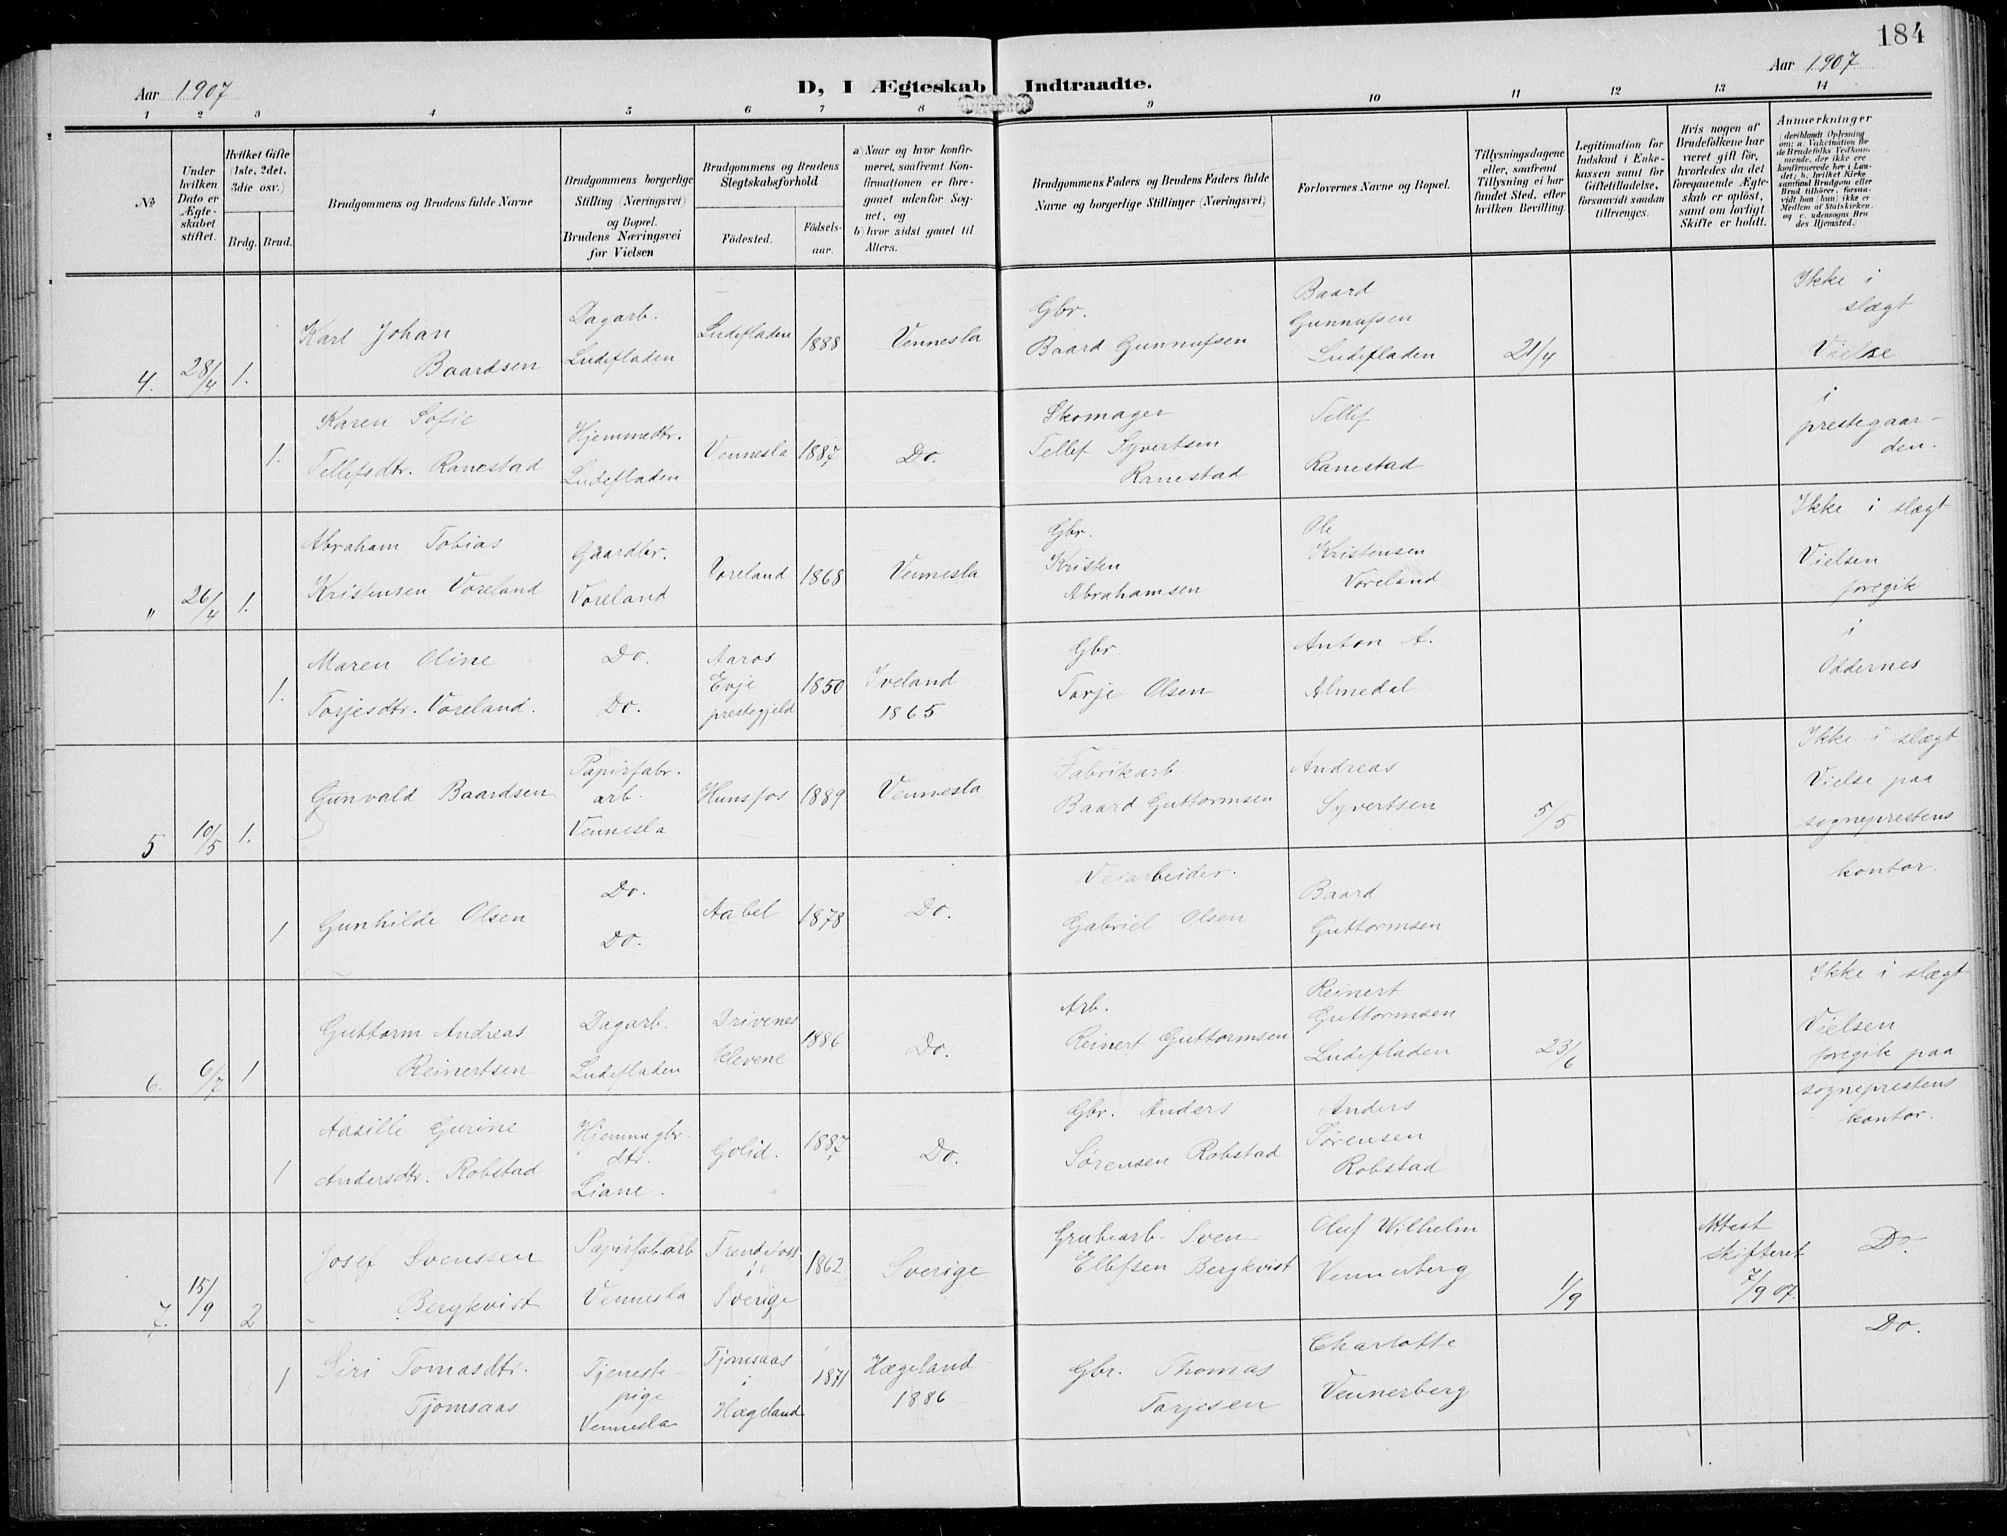 184
Aar 1907
D, I Ægteskab Indtraadte.
Aar 1907
1 2 3 4 5 6 7 8 9 10 11 12 13 14
No
Under hvilken Dato er Ægteskabet stiftet.
Hvilket Gifte (1ste, 2det, 3die osv.)
Brdg. Brud.
Brudgommens og Brudens fulde Navne
Brudgommens borgerlige Stilling (Næringsvei) og Bopæl. Brudens Næringsvei før Vielsen
Brudgommens og Brudens Slegtskabsforhold
Födested. Födsels-aar.
a) Naar og hvor konfirmeret, saafremt Konfirmationen er foregaaet udenför Sognet, og
b) hvor sidst gaaet til Alters.
Brudgommens Faders og Brudens Faders fulde Navne og borgerlige Stillinger (Næringsvei)
Forlovernes Navne og Bopæl.
Tillysningsdagene eller, saafremt Tillysning ei har fundet Sted, efter hvilken Bevilling.
Legitimation for Indskud i Enkekassen samt for Giftetilladelse, forsaavidt saadan tiltrænges.
Hvis nogen af Brudefolkene har været gift för, hvorledes da det foregaaende Ægteskab er oplöst, samt om lovligt Skifte er holdt.
Anmerkninger (deriblandt Oplysning om: a. Vaccination for de Brudefolks Vedkommende, der ikke ere konfirmerede her i Landet; b. hvilket Kirkesamfund Brudgom eller Brud tilhörer, forsaavidt han (hun) ikke er Medlem af Statskirken, og c. udensogns Brudes Hjemsted.)
4. 28/4 1.
Karl Johan
Baardsen
Dagarb.
Ludefladen
Ludefladen 1888 Vennesla
Gbr.
Baard Gunnufsen
Baard
Gunnufsen
Ludefladen
21/4
Ikke i
slægt
Vielse
1.
Karen Sofie
Tellefsdtr. Ranestad
Hjemmedtr.
Ludefladen
Vennesla 1887 Do.
Skomager
Tellef Syvertsen
Ranestad
Tellef
Ranestad
i
prestegaar-
den.
" 26/4 1.
Abraham Tobias
Kristensen Voreland
Gaardbr.
Voreland
Voreland 1868 Vennesla
Gbr.
Kristen
Abrahamsen
Ole
Kristensen
Voreland
Ikke i slægt
Vielsen
foregik
1.
Maren Oline
Torjesdtr. Voreland.
Do.
Do.
Aaros
Evje
prestegjeld
1850
Iveland
1865
Gbr.
Torje Olsen
Anton A.
Almedal
i
Oddernes
5 10/5 1.
Gunvald Baardsen
Papirfabr.
arb.
Vennesla
Hunsfos 1889 Vennesla
Fabrikarb.
Baard Guttormsen
Andreas
Syvertsen
5/5
Ikke i slægt
Vielse paa
sogneprestens
kontor.
1
Gunhilde Olsen
Do.
Do.
Aabel 1878 Do.
Veiarbeider.
Gabriel Olsen
Baard
Guttormsen
6. 6/7 1
Guttorm Andreas
Reinertsen
Dagarb.
Ludefladen
Drivenes
klevene
1886 Do.
Arb.
Reinert Guttormsen
Reinert
Guttormsen
Ludefladen
23/6
Ikke i slægt
Vielsen
foregik paa
sogneprestens
kontor.
1
Aasille Gurine
Andersdtr. Robstad
Hjemmegbr.
dtr.
Liane.
Golid. 1887 Do.
Gbr. Anders
Sørensen Robstad
Anders
Sørensen
Robstad
7. 15/9 2
Josef Svenssen
Bergkvist
Papirfabarb
Vennesla
i
Sverige
1862 Sverige
Grubearb. Sven
Ellefsen Bergkvist
Oluf Wilhelm
Vennerberg
1/9
Attest
skifteret
7/9 07.
Do.
1
Siri Tomasdtr.
Tjomsaas
Tjeneste-
pige
Vennesla
Tjomsaas
i
Hægeland
1871
Hægeland
1886
Gbr. Thomas
Tarjesen
Charlotte
Vennerberg
Do.